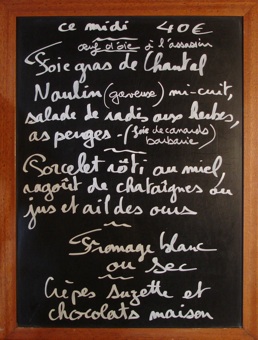 ce midi 40€
œuf d'oie à l'assassin
Foie gras de Chantal
Naulin (gaveuse) mi-cuit,
salade de radis aux herbes,
asperges - (foie de canards
barbarie)
Porcelet rôti au miel,
ragoût de chataîgnes au
jus et ail des ours
Fromage blanc
ou sec
Crêpes suzette et
chocolats maison